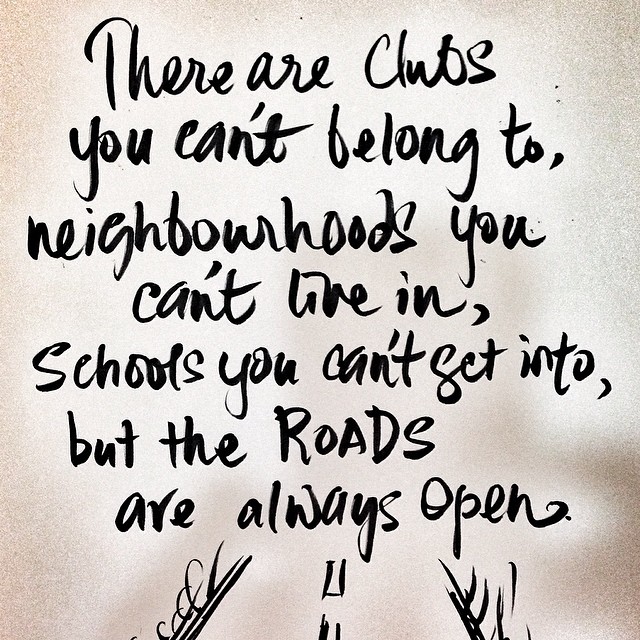 There are Clubs
you can't belong to,
neighbourhoods you
can't live in,
Schools you can't get into,
but the ROADS
are always open.